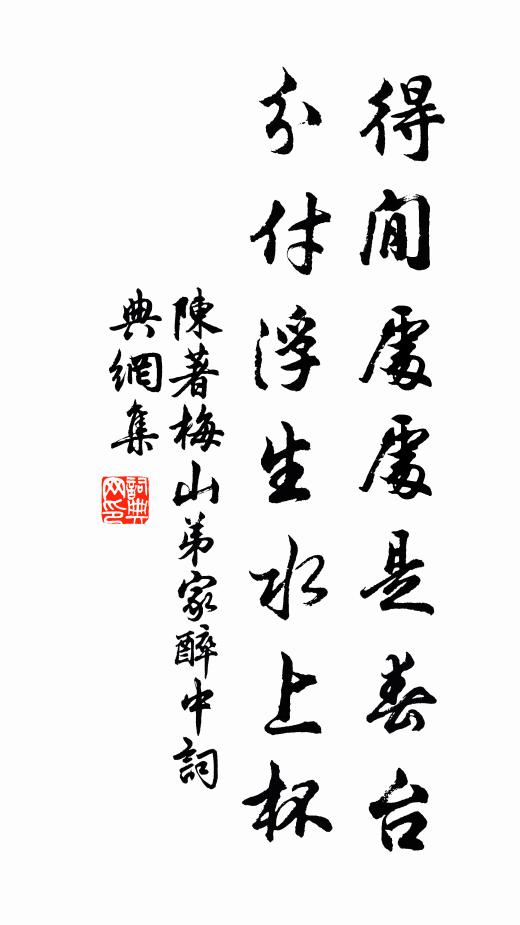 得閒處處是春台
分付浮生水上杯
陳著梅山弟家醉中詞
典網集
詞典
网印